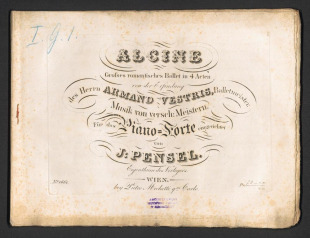 I. G. 1.
ALCINE
Grosses romantisches Ballet in 4 Acten
von der Erfindung
des Herrn ARMAND VESTRIS, Balletmeisters
Musik von versch: Meistern.
Für das Piano-Forte eingerichtet
von
J: PENSEL.
Eigenthum des Verlegers
WIEN,
bey Pietro Mechetti qm Carlo